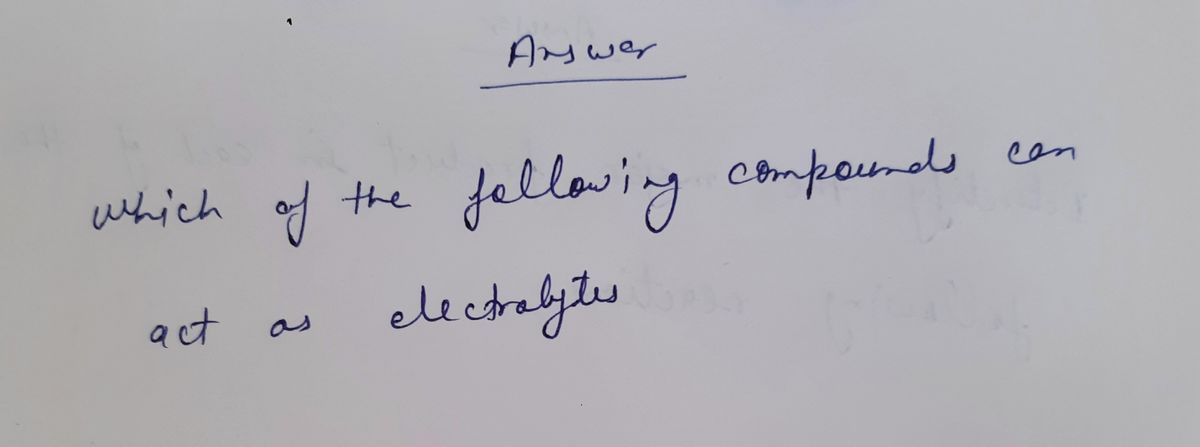 Answer
which of the following compounds can
act as electrolytes